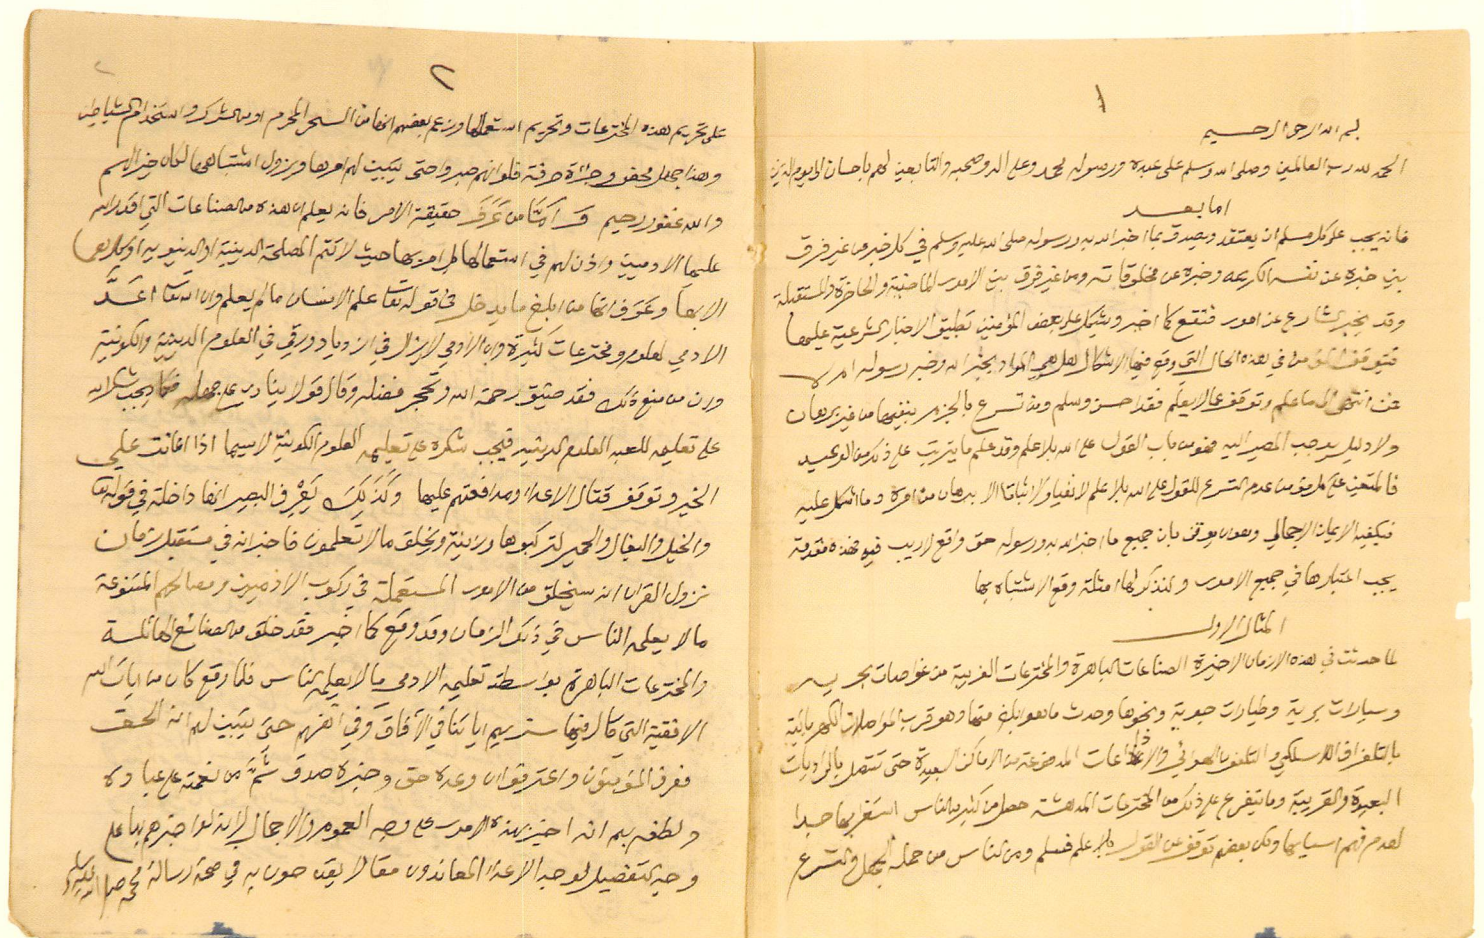 ١
بسم الله الرحمن الرحيم
الحمد لله رب العالمين وصلى الله وسلم على عبده ورسوله محمد وعلى آله وصحبه والتابعين لهم باحسان الى يوم الدين
اما بعد
فانه يجب على كل مسلم ان يعتقد ويصدق بما اخبر الله به ورسوله صلى الله عليه وسلم في كل خبر من غير فرق
بين خبره عن نفسه الكريمة وخبره عن مخلوقاته ومن غير فرق بين الامور الماضية والحاضرة والمستقبلة
وقد يخبر الشارع عن امور فتقع كما اخبر ويشكل على بعض المؤمنين تطبيق الاخبار الشرعية عليها
فتوقف المؤمن في هذه الحال التي وقع فيها الاشكال هل هي المراد بخبر الله وخبر رسوله ام لا
فمن انتهى الى ما علم وتوقف عما لا يعلم فقد احسن وسلم ومن تسرع بالجزم بنفيها من غير برهان
ولا دليل يوجب المصير اليه فهو من باب القول على الله بلا علم وقد علم ما يترتب على ذلك من الوعيد
فالمتعين على المؤمن عدم التسرع للقول على الله بلا علم لا نفيا ولا اثباتا الا ببرهان من امره وما اشكل عليه
فيكفيه الايمان الاجمالي وهو ان يوقن بان جميع ما اخبر الله به ورسوله حق واقع لا ريب فيه فهذه مقدمة
يجب اعتبارها في جميع الامور ولنذكر لها امثلة وقع الاشتباه بها
المثال الاول
لما حدثت في هذه الازمان الاخيرة الصناعات الباهرة والمخترعات الغريبة من غواصات بحرية
وسيارات برية وطيارات جوية ونحوها وحدث ما هو ابلغ منها وهو قرب المواصلات الكهربائية
بالتلغراف اللاسلكي والتلفون الهوائي والاذاعات المدفوعة من الاماكن البعيدة حتى تتصل بالراديات
البعيدة والقريبة وما يتفرع على ذلك من المخترعات المدهشة حصل من كثير من الناس استغرابها جدا
لعدم فهم اسبابها ولكن بعضهم توقف عن القول بلا علم فسلم ومن الناس من حمله الجهل والتسرع
٢
على تحريم هذه المخترعات وتحريم استعمالها وزعم بعضهم انها من السحر المحرم او من الشرك واستخدام الشياطين
وهذا جهل محض وجراءة صرفة فلو انهم صبروا حتى يتبين لهم امرها ويزول اشتباهها لكان خيرا لهم
والله غفور رحيم وَأَمَّا من عَرَفَ حقيقة الامر فانه يعلم ان هذه من الصناعات التي اقدر الله
عليها الادميين واذن لهم في استعمالها بل امر بها حيث لا تتم المصلحة الدينية او الدنيوية او كلاهما
الا بها وعَرَف انها من ابلغ ما يدخل في قوله تعالى علم الانسان ما لم يعلم وان الله تعالى اعدَّ
الادمي لعلوم ومخترعات كثيرة وان الادمي لا يزال في ازدياد ورقي في العلوم الدينية والكونية
وان من منع ذلك فقد ضيق رحمة الله وتحجر فضله وقال قولا ينادي على جهله فكما يجب شكر الله
على تعليمه للعبد العلوم الدينية فيجب شكره على تعليمه العلوم الكونية لا سيما اذا اعانت على
الخير وتوقف قتال الاعداء ومدافعتهم عليها وكَذَلِكَ يَعْرِف البصير انها داخلة في قوله تعالى
والخيل والبغال والحمير لتركبوها وزينة ويخلق ما لا تعلمون فاخبر انه في مستقبل زمان
نزول القران انه سيخلق من الامور المستعملة في ركوب الادميين ومصالحهم المتنوعة
ما لا يعلمه الناس في ذلك الزمان وقد وقع كما اخبر فقد خلق من الصنائع الهائلة
والمخترعات الباهرة بواسطة تعليمه الادمي ما لا يعلمه الناس فلما وقع كان من ايات الله
الافقية التي قال فيها سنريهم اياتنا في الآفاق وفي انفسهم حتى يتبين لهم انه الحق
فعرف المؤمنون واعترفوا ان وعده حق وخبره صدق ثُمَّ من نعمته على عباده
ولطفه بهم انه اخبر بهذه الامور على وجه العموم والاجمال لانه لو اخبرهم بها على
وجه التفصيل لوجد الاعداء المعاندون مقالا يقدحون به في صحة رسالة محمد صلى الله عليه وسلم